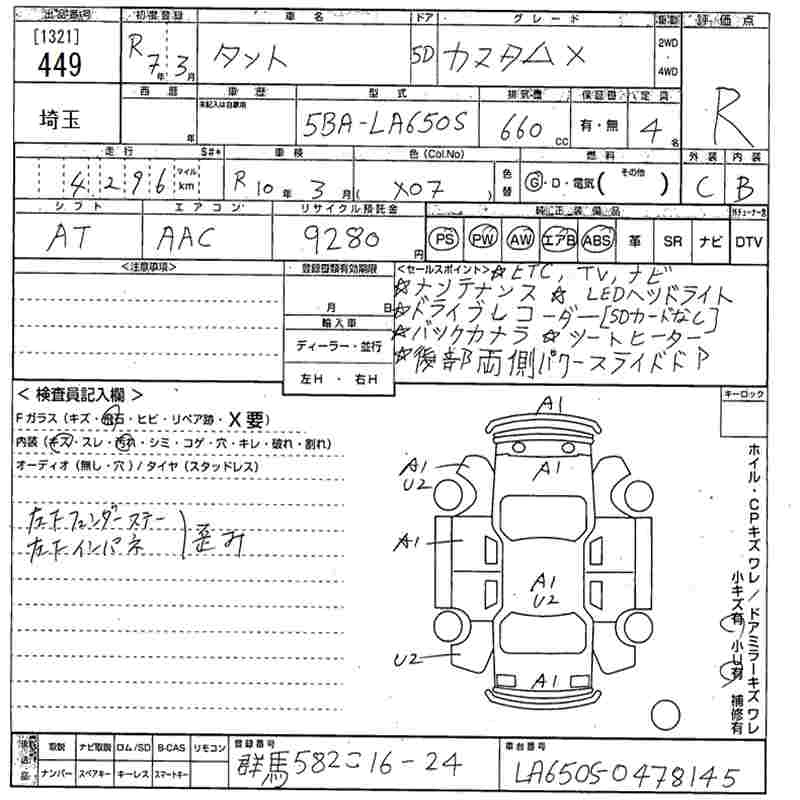 出品番号 初度登録 車名 ドア グレード 駆動 評価点
[1321] 449 R7年3月 タント 5D カスタムX 2WD 4WD R
埼玉 西暦 年 車歴 未記入は自家用 型式 5BA-LA650S 排気量 660cc 保証書 有・無 定員 4名
走行 S#* 4296 マイル km 車検 R10年3月 色(Col.No) (X07) 色替 燃料 G・D・電気(その他) 外装 C 内装 B
シフト AT エアコン AAC リサイクル預託金 9280円 純正装備品 PS PW AW エアB ABS 革 SR ナビ DTV
<注意事項>
登録書類有効期限 月 日
輸入車
ディーラー・並行
左H・右H
<セールスポイント>☆ETC, TV, ナビ
☆メンテナンス ☆LEDヘッドライト
☆ドライブレコーダー[SDカードなし]
☆バックカメラ ☆シートヒーター
☆後部両側パワースライドドア
<検査員記入欄>
Fガラス(キズ・飛石・ヒビ・リペア跡・X要)
内装(キズ・スレ・汚れ・シミ・コゲ・穴・キレ・破れ・割れ)
オーディオ(無し・穴)/タイヤ(スタッドレス)
左下フェンダーステー
左下インパネ
歪み
キーロック
A1
A1 U2
A1
A1
A1 U2
U2
A1
ホイル・CPキズワレ/ドアミラーキズワレ
小キズ有 小U有 補修有
取説 ナビ取説 ロム/SD B-CAS リモコン
ナンバー スペアキー キーレス スマートキー
登録番号 群馬582こ16-24
車台番号 LA650S-0478145